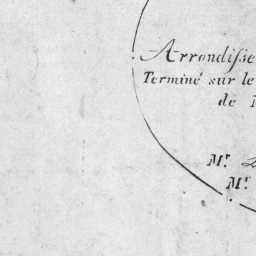 Arrondisse
Terminé sur le
de
Mr.
Mr.